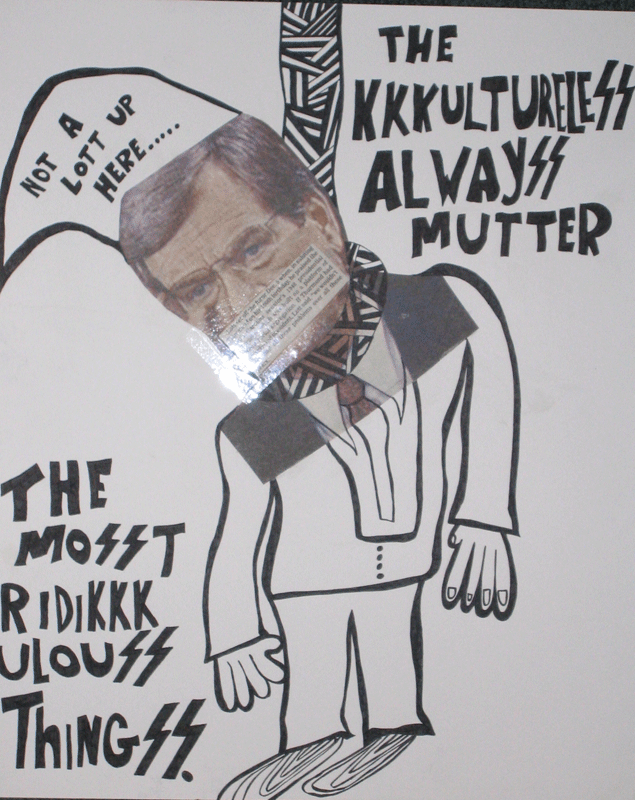 THE
KKKULTURELESS
ALWAYSS
MUTTER
NOT A
LOTT UP
HERE.....
THE
MOSST
RIDIKKK
ULOUSS
THINGSS.